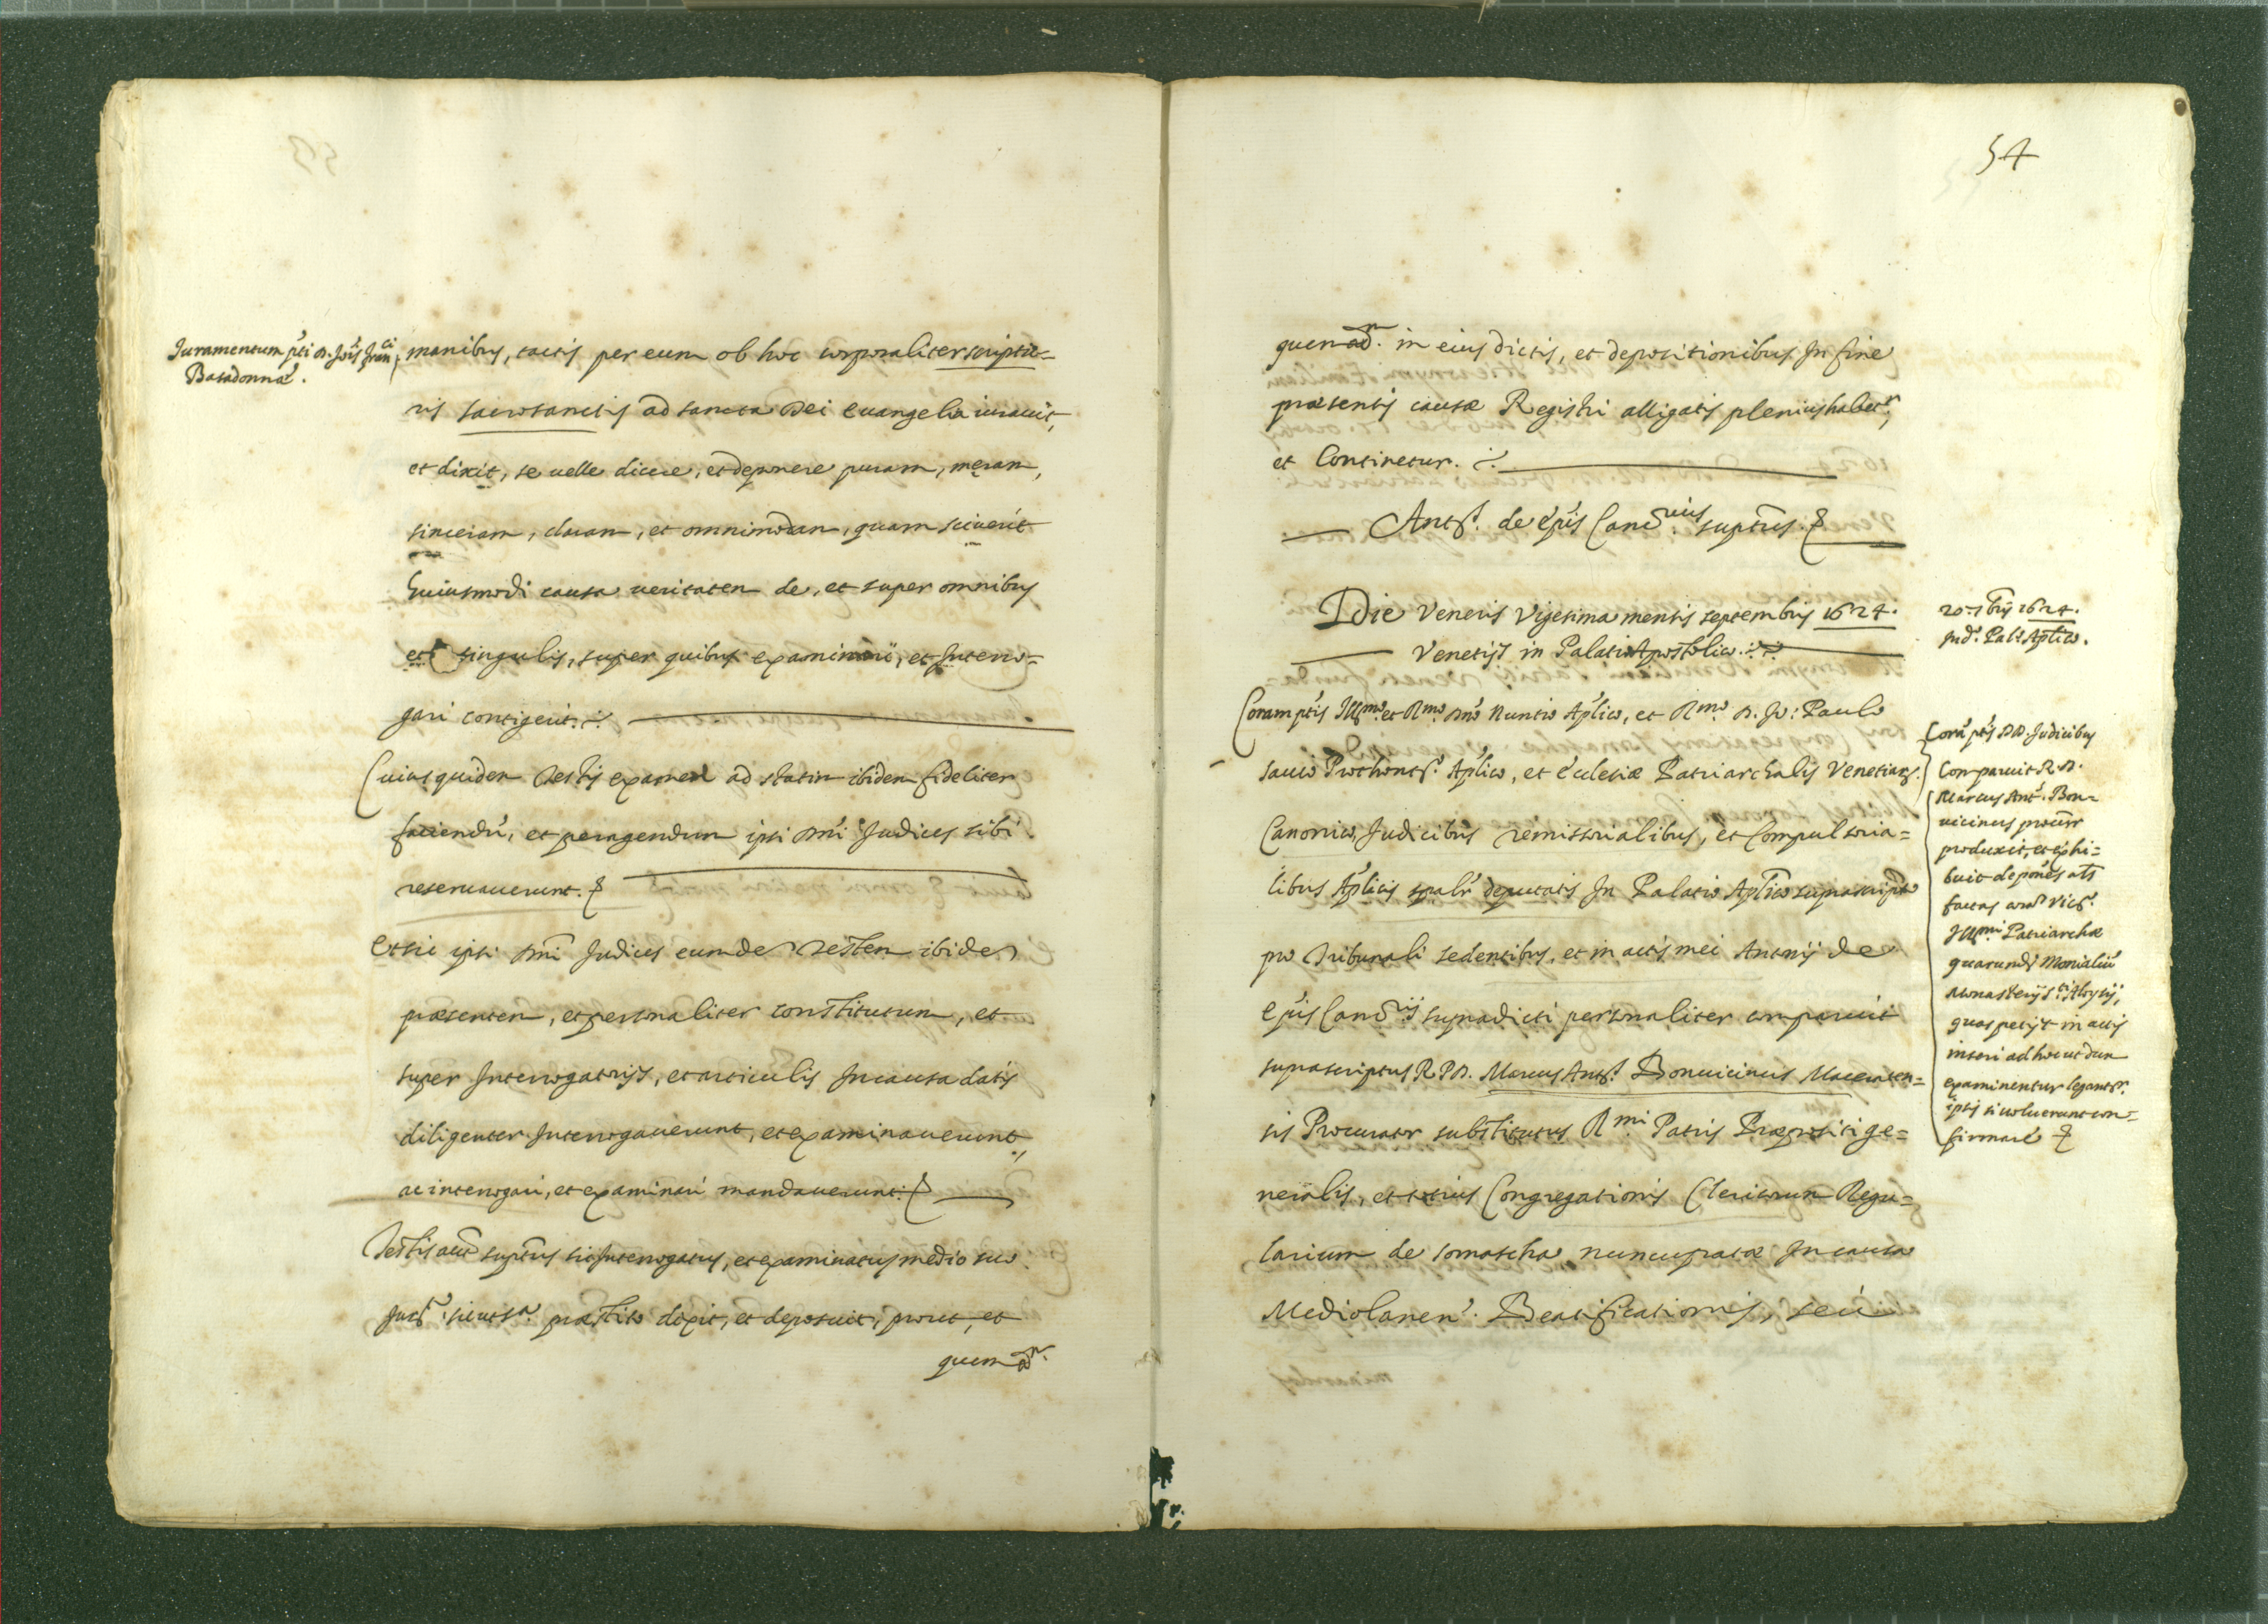 Juramentum pti D. Jois Franci
Basadonnæ.
manibus, tactis per eum ob hoc corporaliter scriptu=
ris sacrosanctis ad sancta Dei evangelia iuravit,
et dixit, se velle dicere, et deponere puram, meram,
sinceram, claram, et omnimodam, quam sciverit
huiusmodi causa veritatem de, et super omnibus
et singulis, super quibus examinari, et Interro=
gari contigerit.
Cuius quidem Testis examen ad statim ibidem fideliter
faciendū, et peragendum ipsi Dni Judices sibi
reservaverunt.
Et sic ipsi Dni Judices eumdē Testem ibidē
præsentem, et personaliter constitutum, et
super Interrogatorijs, et articulis In causa datis
diligenter Interrogaverunt, et examinaverunt,
ac interrogari, et examinari mandaverunt.
Testis aut supttus sic Interrogatus, et examinatus medio suo
Jurto sicut sa. præstito dixit, et deposuit, prout, et
quemadr.
54
quemadr. in eius dictis, et depositionibus In fine
præsentis causæ Registri alligatis plenius habetr,
et Continetur.
Antus. de Epis Cancrius supttus.
Die Veneris Vigesima mensis septembris 1624.
Venetijs in Palatio Apostolico.
20. 7bris 1624.
Ind. Palo Aptico.
Coram ptis Illmo et Rmo Dno Nuntio Aplico, et Rmo D. Jo: Paulo
sauio Prothonto. Aplico, et Ecclesiæ Patriarchalis Venetiarz.
Canonico, Judicibus remissorialibus, et Compulsoria=
libus Aplicis spalr deputatis In Palatio Aplico suprascripto
pro Tribunali sedentibus, et in actis mei Antonij de
Epis Cancrij supradicti personaliter comparuit
suprascriptus R.P.D. Marcus Antus. Bonvicinus Maceraten=
sis Procurator substitutus Rmi Patris Præpositi ge=
neralis, et totius Congregationis Clericorum Regu=
larium de somascha nuncupatæ In causa
Mediolanen. Beatificationis, seù
Corā ptis DD. Judicibus
Comparuit R.D.
Marcus Ant. Bon=
vicinus procurr
produxit, et exhi=
buit deponēs ats
factas corā Vico.
Illmi Patriarchæ
quarundā Monialiū
Monasterij Sti Aloysij,
quas petijt in actis
inseri ad hoc ut dum
examinentur legantr.
ipsis si voluerunt con=
firmare